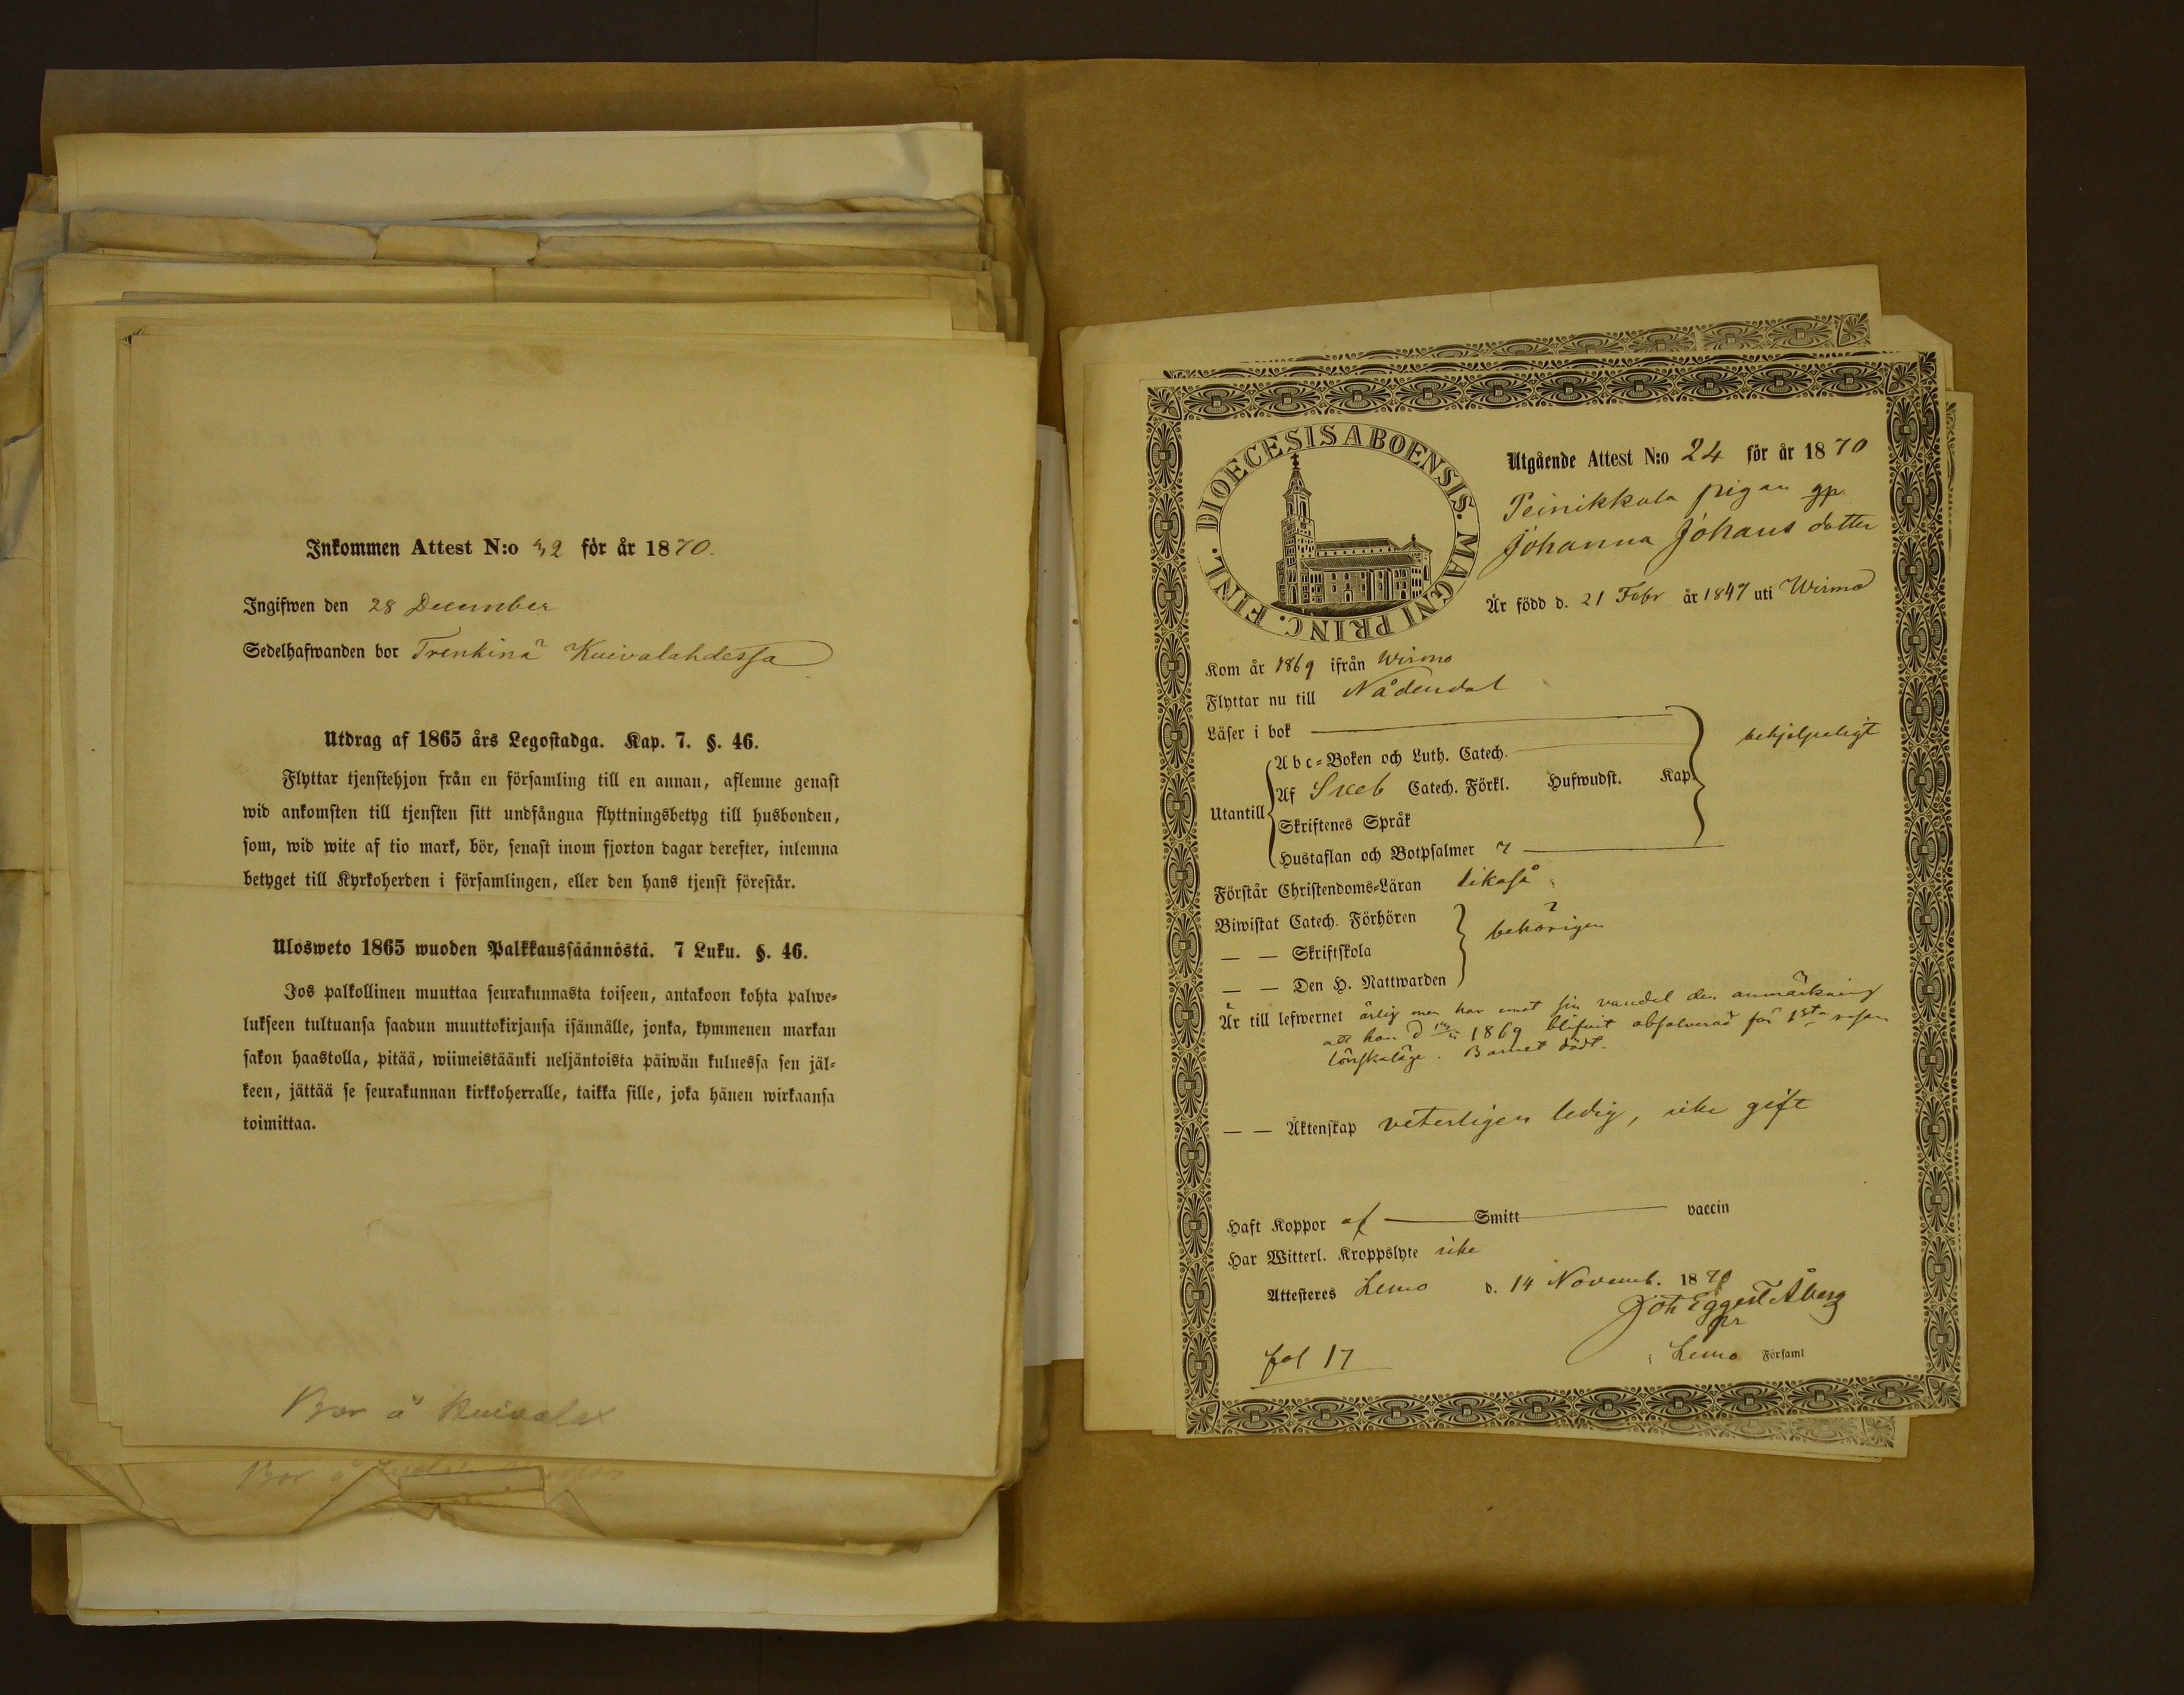 Inkommen Attest N:o 32 för år 1870.
Ingifwen den 28 December
Sedelhafwanden bor Trenkinä Kuivalahdessa
Utdrag af 1865 års Legostadga. Kap. 7. §. 46.
Flyttar tjenstehjon från en församling till en annan, aflemne genast
wid ankomsten till tjensten sitt undfångna flyttningsbetyg till husbonden,
som, wid wite af tio mark, bör, senast inom fjorton dagar derefter, inlemna
betyget till Kyrkoherden i församlingen, eller den hans tjenst förestår.
Ulosweto 1865 wuoden Palkkaussäännöstä. 7 Luku. §. 46.
Jos palkollinen muuttaa seurakunnasta toiseen, antakoon kohta palwe=
lukseen tultuansa saadun muuttokirjansa isännälle, jonka, kymmenen markan
sakon haastolla, pitää, wiimeistäänki neljäntoista päiwän kuluessa sen jäl=
keen, jättää se seurakunnan kirkkoherralle, taikka sille, joka hänen wirkaansa
toimittaa.
Bor å Kuivalax
Bor å
DIOECESIS ABOENSIS. MAGNI PRINC. FINL.
Utgående Attest N:o 24 för år 1870
Peinikkala pigan qp.
Johanna Johans dotter
Är född d. 21 Febr år 1847 uti Wirmo
Kom år 1869 ifrån Wirmo
Flyttar nu till Nådendal
Läser i bok
behjelpeligt
Abc=Boken och Luth. Catech.
Utantill Af Sveb Catech. Förkl. Hufwudst. Kap.
Skriftenes Språk
Hustaflan och Botpsalmer 7
Förstår Christendoms=Läran likaså
Biwistat Catech. Förhören
— — Skriftskola behörigen
— — Den H. Nattwarden
Är till lefwernet ärlig men har emot sin vandel den anmärkning
att hon d 1869 blifvit absolverad för 1sta resan
lönskaläge. Barnet dödt.
— — Äktenskap veterligen ledig, icke gift
Haft Koppor af Smitt vaccin
Har Witterl. Kroppslyte icke
Attesteres Lemo d. 14 Novemb. 1870
Joh Eggert Åberg
pr
fol 17
i Lemo Församl